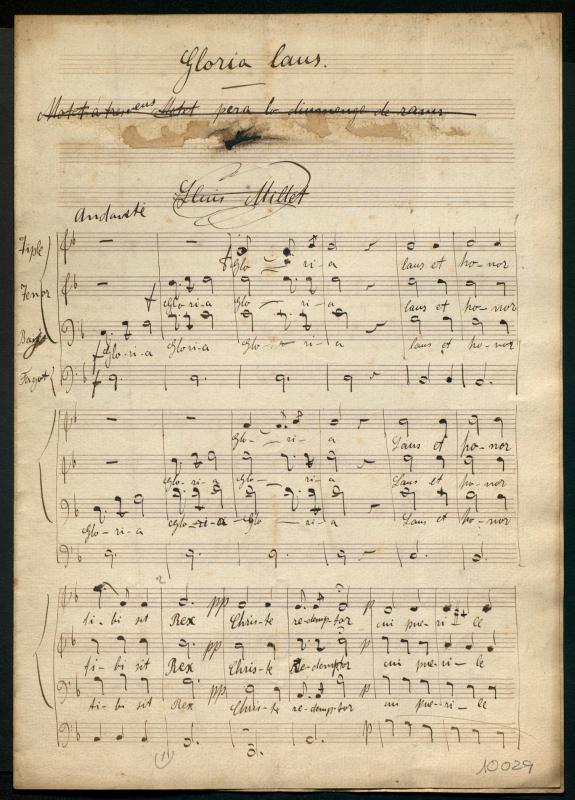 Gloria laus.
Motet á tres veus Motet pera lo diumenge de rams
Lluis Millet
Andante
Tiple
Glo - ri - a laus et ho - nor
Tenor
f Glo - ri - a Glo - ri - a laus et ho - nor
Baixs
f Glo - ri - a Glori - a Glo - ri - a laus et ho - nor
Fagot f
Glo - ri - a Laus et ho - nor
Glo - ri - a Glo - ri - a Laus et ho - nor
Glo - ri - a Glo - ri - a Glo - ri - a Laus et ho - nor
2
ti - bi sit Rex pp Chris - te re - demp - tor p cui pue - ri - le
ti - bi sit Rex pp Chris - te Re - demptor p cui pue - ri - le
ti - bi sit Rex pp Chris - te re - demp - tor p cui pue - ri - le
p
(1)
10029